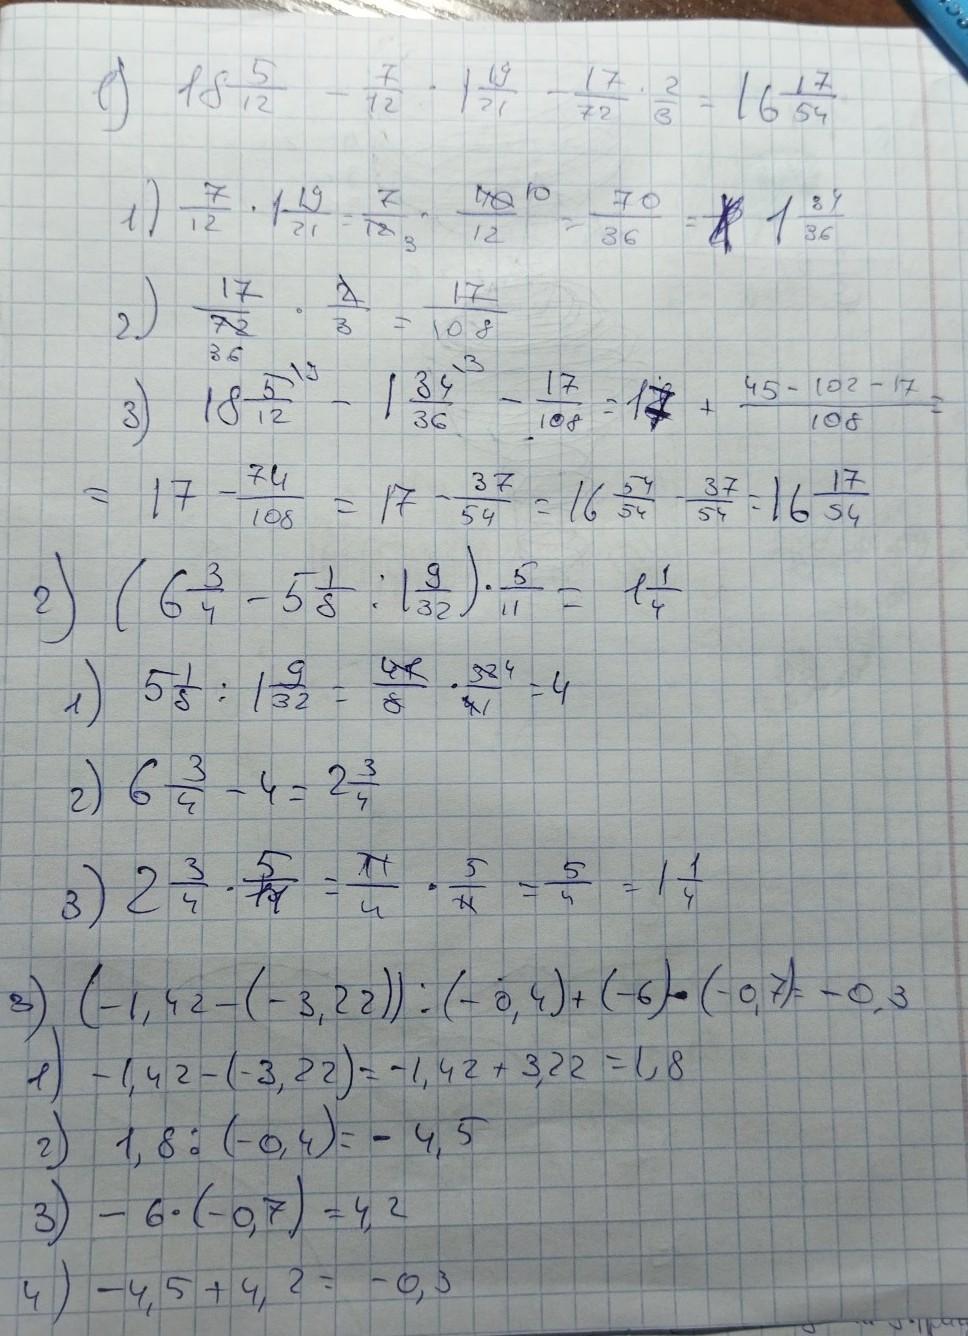 1) 18 5/12 - 7/12 · 1 19/21 - 17/72 · 2/3 = 16 17/54
1) 7/12 · 1 19/21 = 7/12 3 · 40/12 10 = 70/36 = 1 34/36
2) 17/72 36 · 2/3 = 17/108
3) 18 5/12 \9 - 1 34/36 \3 - 17/108 = 17 + (45 - 102 - 17)/108 =
= 17 - 74/108 = 17 - 37/54 = 16 54/54 - 37/54 = 16 17/54
2) (6 3/4 - 5 1/8 : 1 9/32) · 5/11 = 1 1/4
1) 5 1/8 : 1 9/32 = 41/8 · 32/41 4 = 4
2) 6 3/4 - 4 = 2 3/4
3) 2 3/4 · 5/11 = 11/4 · 5/11 = 5/4 = 1 1/4
3) (-1,42 - (-3,22)) : (-0,4) + (-6) · (-0,7) = -0,3
1) -1,42 - (-3,22) = -1,42 + 3,22 = 1,8
2) 1,8 : (-0,4) = - 4,5
3) - 6 · (-0,7) = 4,2
4) -4,5 + 4,2 = -0,3